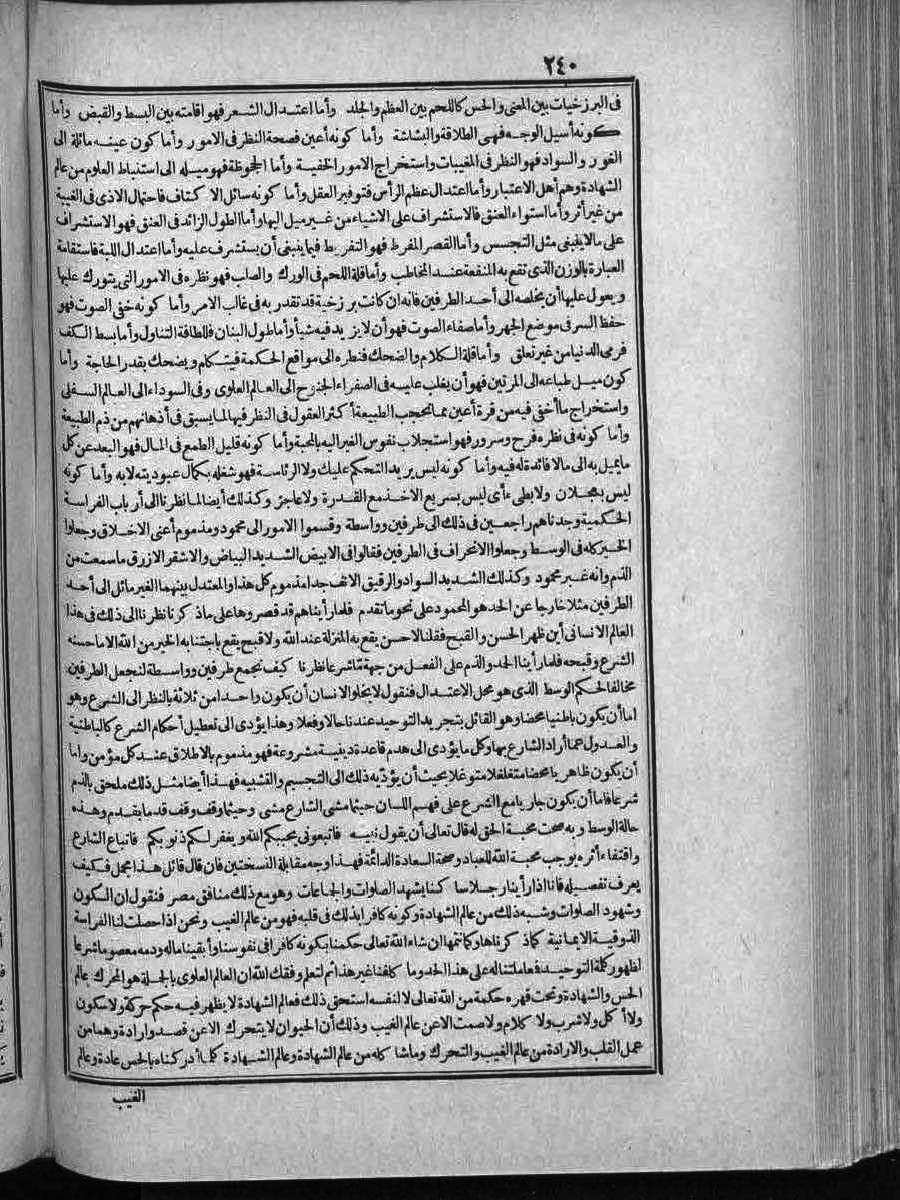 ٢٤٠
فى البرزخيات بين المعنى والحس كاللحم بين العظم والجلد وأما اعتدال الشعر فهو اقامته بين البسط والقبض وأما
كونه أسيل الوجه فهى الطلاقة والبشاشة وأما كونه أعين فصحة النظر فى الامور وأما كون عينه مائلة الى
الغور والسواد فهو النظر فى المغيبات واستخراج الامور الخفية وأما الجحوظة فهو ميله الى استنباط العلوم من عالم
الشهادة وهم أهل الاعتبار وأما اعتدال عظم الرأس فتوفير العقل وأما كونه سائل الاكتاف فاحتمال الاذى فى الغيبة
من غير أثر وأما استواء العنق فالاستشراف على الاشياء من غير ميل اليها وأما الطول الزائد فى العنق فهو الاستشراف
على ما لا ينبغى مثل التجسس وأما القصر المفرط فهو التفريط فيما ينبغى أن يستشرف عليه وأما اعتدال اللبة فاستقامة
العبارة بالوزن الذى تقع به المنفعة عند المخاطب وأما قلة اللحم فى الورك والصلب فهو نظره فى الامور التى يتورك عليها
ويعول عليها أن يخلصه الى أحد الطرفين فانه ان كانت برزخية قد تقدر به فى غالب الامر وأما كونه خفى الصوت فهو
حفظ السر فى موضع الجهر وأما صفاء الصوت فهو أن لا يزيد فيه شيأ وأما طول البنان فللطافة التناول وأما بسط الكف
فرمى الدنيا من غير تعلق وأما قلة الكلام والضحك فنظره الى مواقع الحكمة فيتكلم ويضحك بقدر الحاجة وأما
كون ميل طباعه الى المرتين فهو أن يغلب عليه فى الصفراء الجنوح الى العالم العلوى وفى السوداء الى العالم السفلى
واستخراج ما أخفى فيه من قرة أعين مما يحجب الطبيعة أكثر العقول فى النظر فيها لما يسبق فى أذهانهم من ذم الطبيعة
وأما كونه فى نظره فرح وسرور فهو استجلاب نفوس الغير اليه بالمحبة وأما كونه قليل الطمع فى المال فهو البعد عن كل
ما يميل به الى ما لا فائدة له فيه وأما كونه ليس يريد التحكم عليك ولا الرئاسة فهو شغله بكمال عبوديته لا به وأما كونه
ليس بعجلان ولا بطىء أى ليس بسريع الاخذ مع القدرة ولا عاجز وكذلك أيضا لما نظرنا الى أرباب الفراسة
الحكمية وجدناهم راجعين فى ذلك الى طرفين وواسطة وقسموا الامور الى محمود ومذموم أعنى الاخلاق وجعلوا
الخير كله فى الوسط وجعلوا الانحراف فى الطرفين فقالوا فى الابيض الشديد البياض والاشقر الازرق ما سمعت من
الذم وانه غير محمود وكذلك الشديد السواد والرقيق الانف جدا مذموم كل هذا والمعتدل بينهما الغير مائل الى أحد
الطرفين مثلا خارجا عن الحد هو المحمود على نحو ما تقدم فلما رأيناهم قد قصروها على ما ذكرنا نظرنا الى ذلك فى هذا
العالم الانسانى أين ظهر الحسن والقبح فقلنا لا حسن يقع به المنزلة عند الله ولا قبح يقع باجتنابه الخير من الله الا ما حسنه
الشرع وقبحه فلما رأينا الحد والذم على الفعل من جهة ما شرعا نظرنا كيف نجمع طرفين وواسطة لنجعل الطرفين
مخالفا لحكم الوسط الذى هو محل الاعتدال فنقول لا يخلو الانسان أن يكون واحدا من ثلاثة بالنظر الى الشرع وهو
اما أن يكون باطنيا محضا وهو القائل بتجريد التوحيد عندنا حالا وفعلا وهذا يؤدى الى تعطيل أحكام الشرع كالباطنية
والعدول عما أراد الشارع بها وكل ما يؤدى الى هدم قاعدة دينية مشروعة فهو مذموم بالاطلاق عند كل مؤمن واما
أن يكون ظاهريا محضا متغلغلا متوغلا بحيث أن يؤديه ذلك الى التجسيم والتشبيه فهذا أيضا مثل ذلك ملحق بالذم
شرعا فاما أن يكون جاريا مع الشرع على فهم اللسان حيثما مشى الشارع مشى وحيثما وقف وقف قدما بقدم وهذه
حالة الوسط وبه صحت محبة الحق له قال تعالى أن يقول نبيه فاتبعونى يحببكم الله ويغفر لكم ذنوبكم فاتباع الشارع
واقتفاء أثره يوجب محبة الله للعباد وصحة السعادة الدائمة فهذا وجه مقابلة النسختين فان قال قائل هذا مجمل فكيف
يعرف تفصيله فانا اذا رأينا رجلا ساكنا يشهد الصلوات والجماعات وهو مع ذلك منافق مصر فنقول ان السكون
وشهود الصلوات وشبه ذلك من عالم الشهادة وكونه كافرا بذلك فى قلبه فهو من عالم الغيب ونحن اذا حصلت لنا الفراسة
الذوقية الايمانية كما ذكرناها وكمالتها ان شاء الله تعالى حكمنا بكونه كافرا فى نفوسنا وأبقينا ماله ودمه معصوما شرعا
لظهور كلمة التوحيد فعاملتنا له على هذا الحد وما كلفنا غير هذا ثم لتعلم وفقك الله ان العالم العلوى بالجملة هو المحرك عالم
الحس والشهادة وتحت قهره حكمة من الله تعالى لا لنفسه استحق ذلك فعالم الشهادة لا يظهر فيه حكم حركة ولا سكون
ولا أكل ولا شرب ولا كلام ولا صمت الا عن عالم الغيب وذلك أن الحيوان لا يتحرك الا عن قصد وارادة وهما من
عمل القلب والارادة من عالم الغيب والتحرك وما شاكله من عالم الشهادة وعالم الشهادة كلما أدركناه بالحس عادة وعالم
الغيب